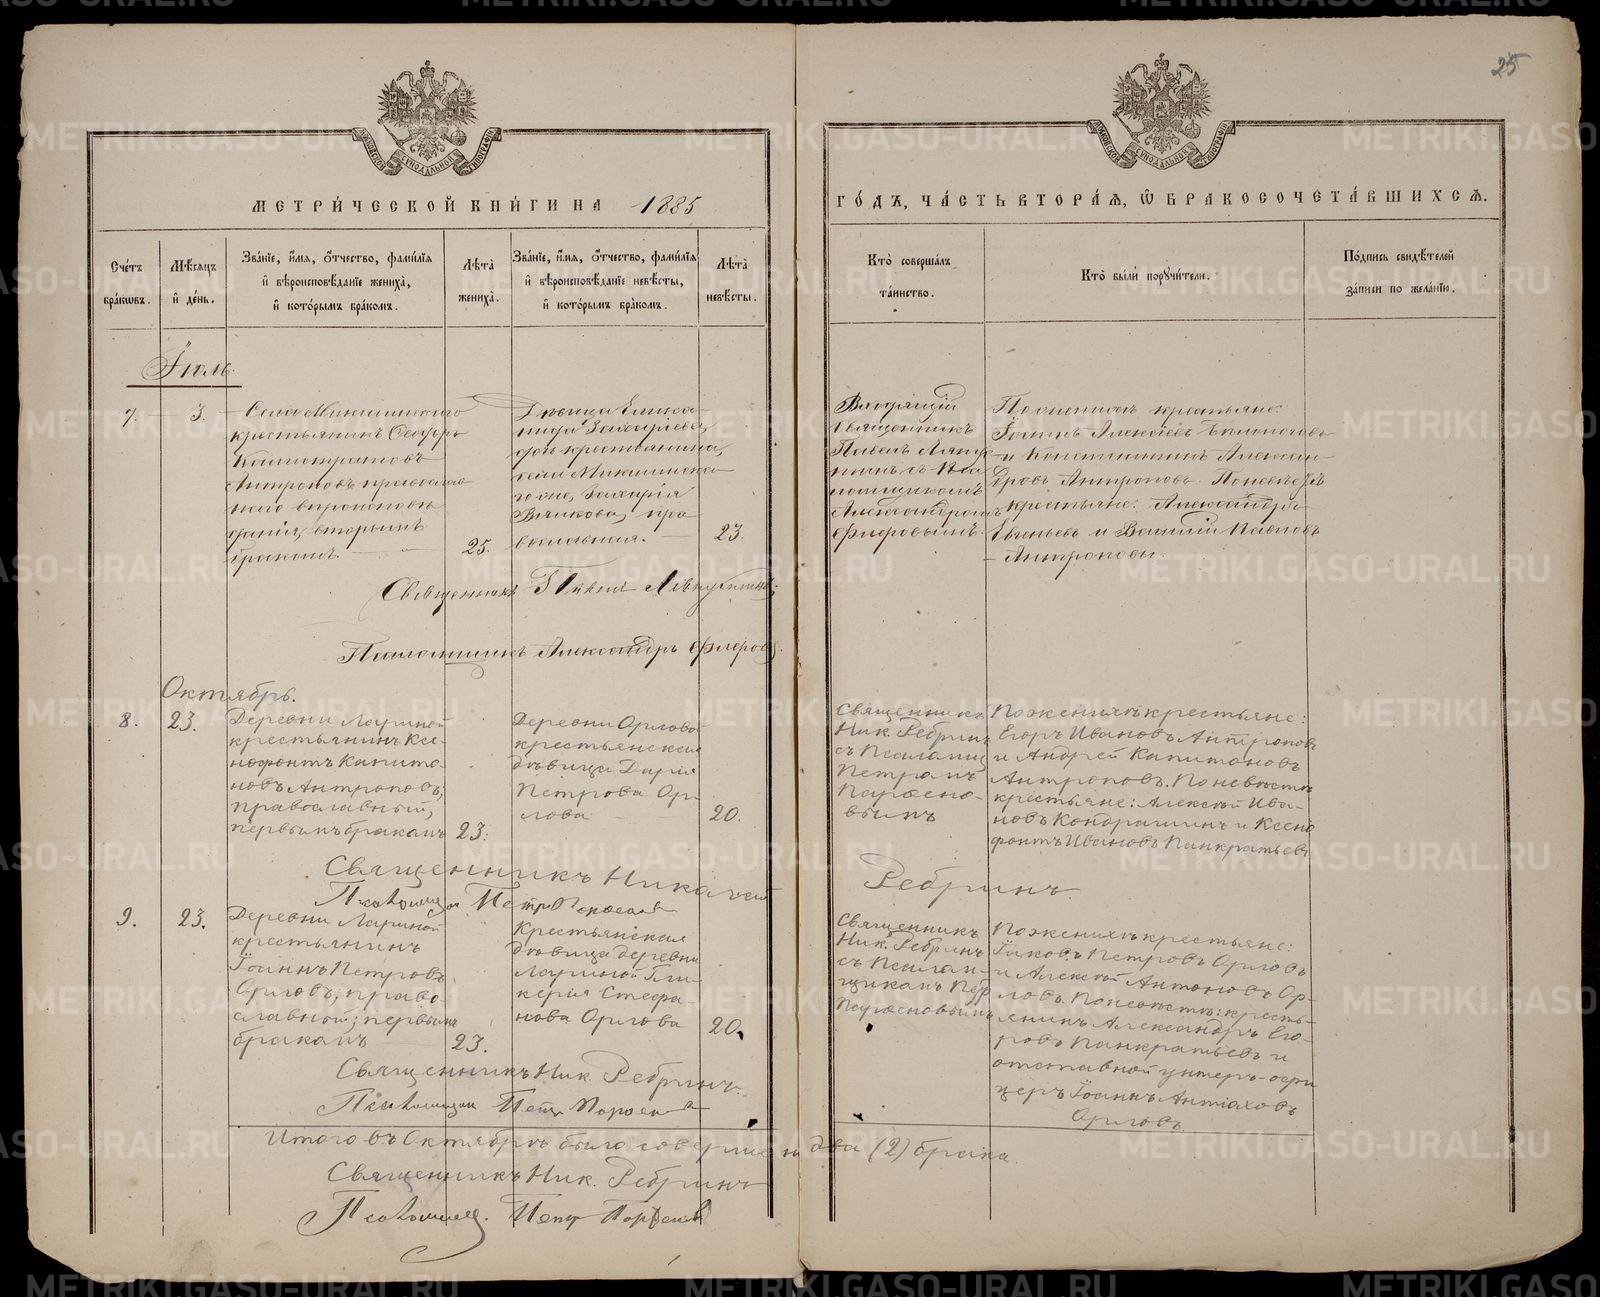 25
МЕТРИЧЕСКОЙ КНИГИ НА 1885
ГОДЪ, ЧАСТЬ ВТОРАЯ, Ѡ БРАКОСОЧЕТАВШИХСЯ.
Счетъ браковъ.
Мѣсяцъ и день.
Званіе, имя, отчество, фамилія
и вѣроисповѣданіе жениха,
и которымъ бракомъ.
Лѣта
жениха.
Званіе, имя, отчество, фамилія
и вѣроисповѣданіе невѣсты,
и которымъ бракомъ.
Лѣта
невѣсты.
Кто совершалъ
таинство.
Кто были поручители.
Подпись свидѣтелей
записи по желанію.
Іюль
7.
3.
Села Микшинскаго
крестьянинъ Ѳеодоръ
Антроповъ православ
наго вѣроисповѣ
данія, вторымъ
бракомъ
25.
Дѣвица
дочь крестьянина
села Микшинска
го Захарія
пра
вославная.
23.
Входящій
Священникъ
Павелъ
Александромъ
Флеровымъ
По женихѣ крестьяне:
Іоаннъ Алексѣевъ
и Константинъ Алексан
дровъ Антроповъ. По невѣстѣ
крестьяне: Александръ
и Василій Павловъ
Антроповы.
Священникъ Павелъ
Псаломщикъ Александръ Флеровъ
Октябрь.
8.
23.
Деревни Лариной
крестьянинъ Ксе-
нофонтъ Капито
новъ Антроповъ,
православный,
первымъ бракомъ
23.
Деревни Орлова
крестьянская
дѣвица Дарія
Петрова Ор-
лова
20.
Священникъ
Ник. Ребринъ
съ Псаломщ
Петромъ
Парѳено-
вымъ
По женихѣ крестьяне:
Егоръ Ивановъ Антроповъ
и Андрей Капитоновъ
Антроповъ. По невѣстѣ
крестьяне: Алексѣй Ива-
новъ Кондрашинъ и Ксено
фонтъ Ивановъ Панкратьевъ
Священникъ Николай Ребринъ
Псаломщикъ Петръ Парѳеновъ
9.
23.
Деревни Лариной
крестьянинъ
Іоаннъ Петровъ
Орловъ, право-
славный; первымъ
бракомъ
23.
Крестьянская
дѣвица деревни
Лариной Гли-
керія Стефа-
нова Орлова
20.
Священникъ
Ник. Ребринъ
съ Псалом-
щикомъ Петр
Парѳеновымъ
По женихѣ крестьяне:
Іаковъ Петровъ Орловъ
и Алексѣй Антоновъ Ор-
ловъ. По невѣстѣ: кресть-
янинъ Александръ Его-
ровъ Панкратьевъ и
отставной унтеръ-офи
церъ Іоаннъ Антіаховъ
Орловъ
Священникъ Ник. Ребринъ
Псаломщикъ Петръ Парѳеновъ
Итого въ Октябрѣ было совершено два (2) брака.
Священникъ Ник. Ребринъ
Псаломщ. Петръ Парѳеновъ
METRIKI.GASO-URAL.RU